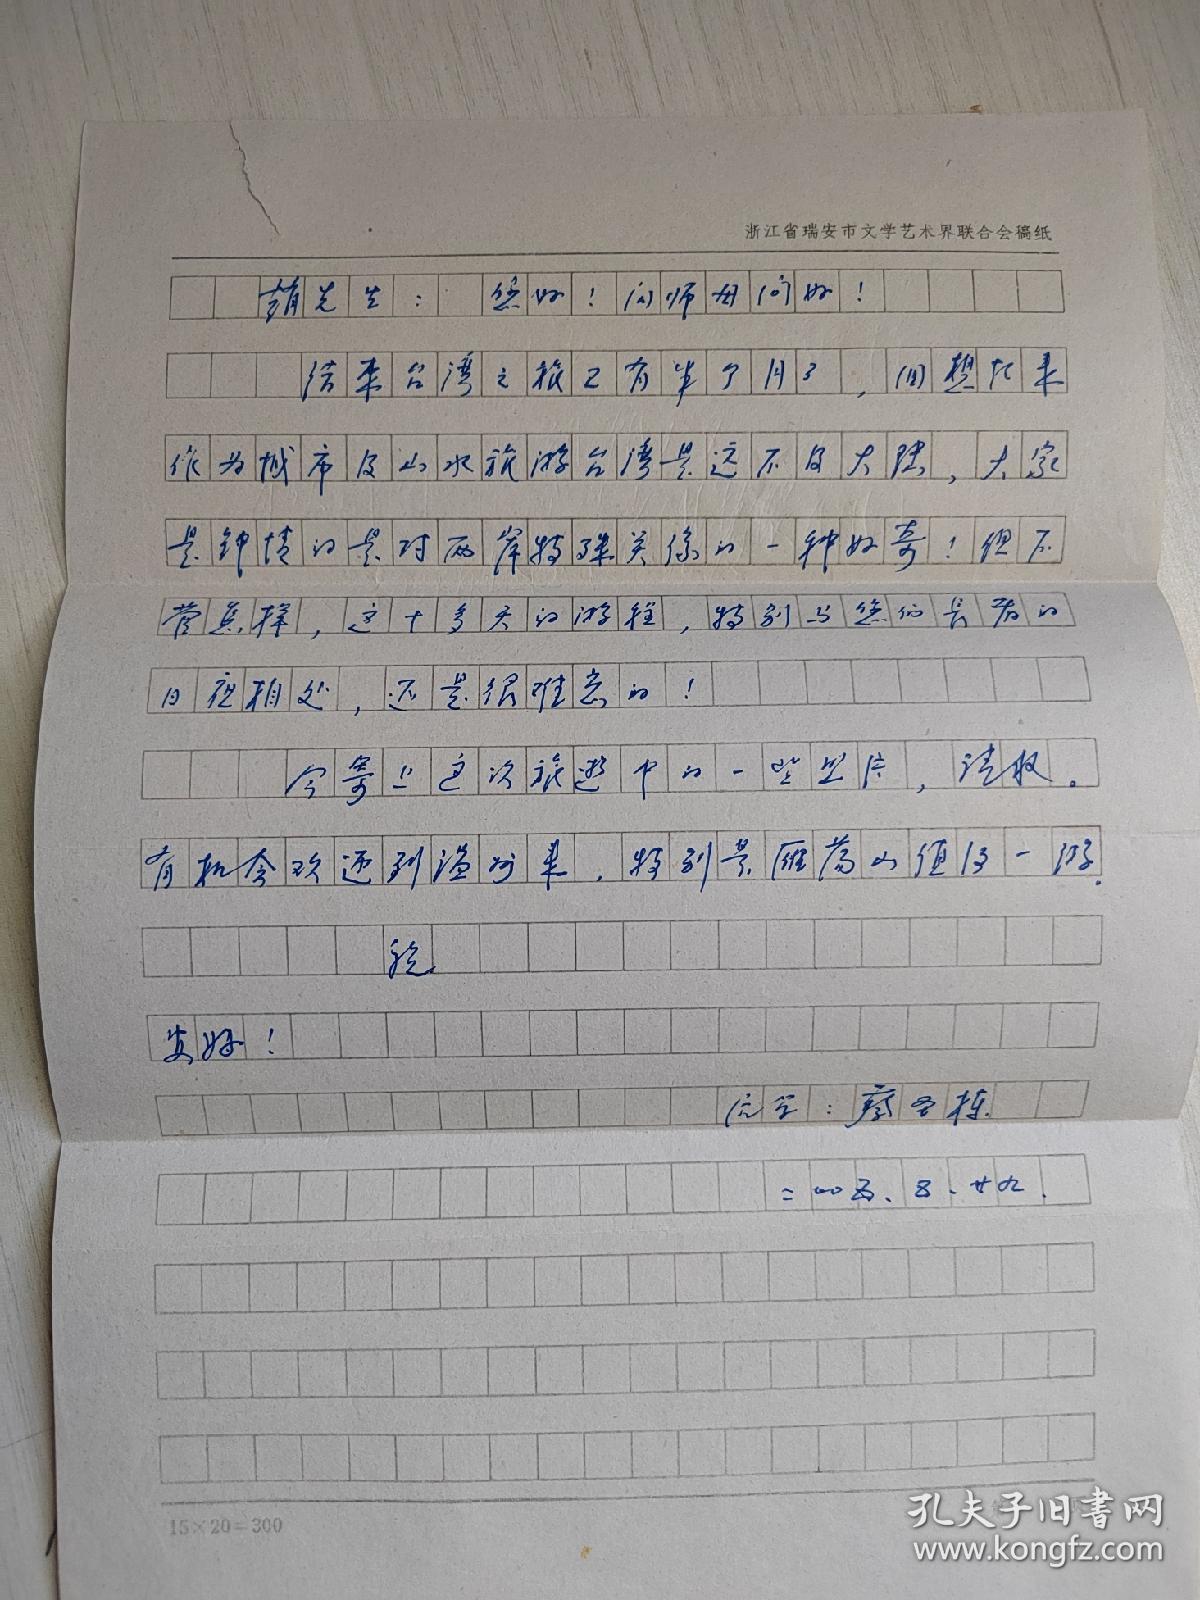 浙江省瑞安市文学艺术界联合会稿纸
先生：您好！向师母问好！
结束台湾之旅已有半个月了，回想起来
作为城市及山水旅游台湾是远不及大陆，大家
是钟情的是对两岸特殊关系的一种好奇！但不
管怎样，这十多天的游程，特别与您们长者的
日夜相处，还是很惬意的！
今寄上这次旅遊中的一些照片，请收。
有机会欢迎到温州来．特别是雁荡山值得一游．
祝
安好！
后学：蔡圣栋
二〇〇五、8、廿九．
15×20＝300
孔夫子旧书网
www.kongfz.com